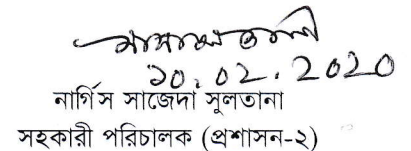 ১০.০২.2020
নার্গিস সাজেদা সুলতানা
সহকারী পরিচালক (প্রশাসন-২)